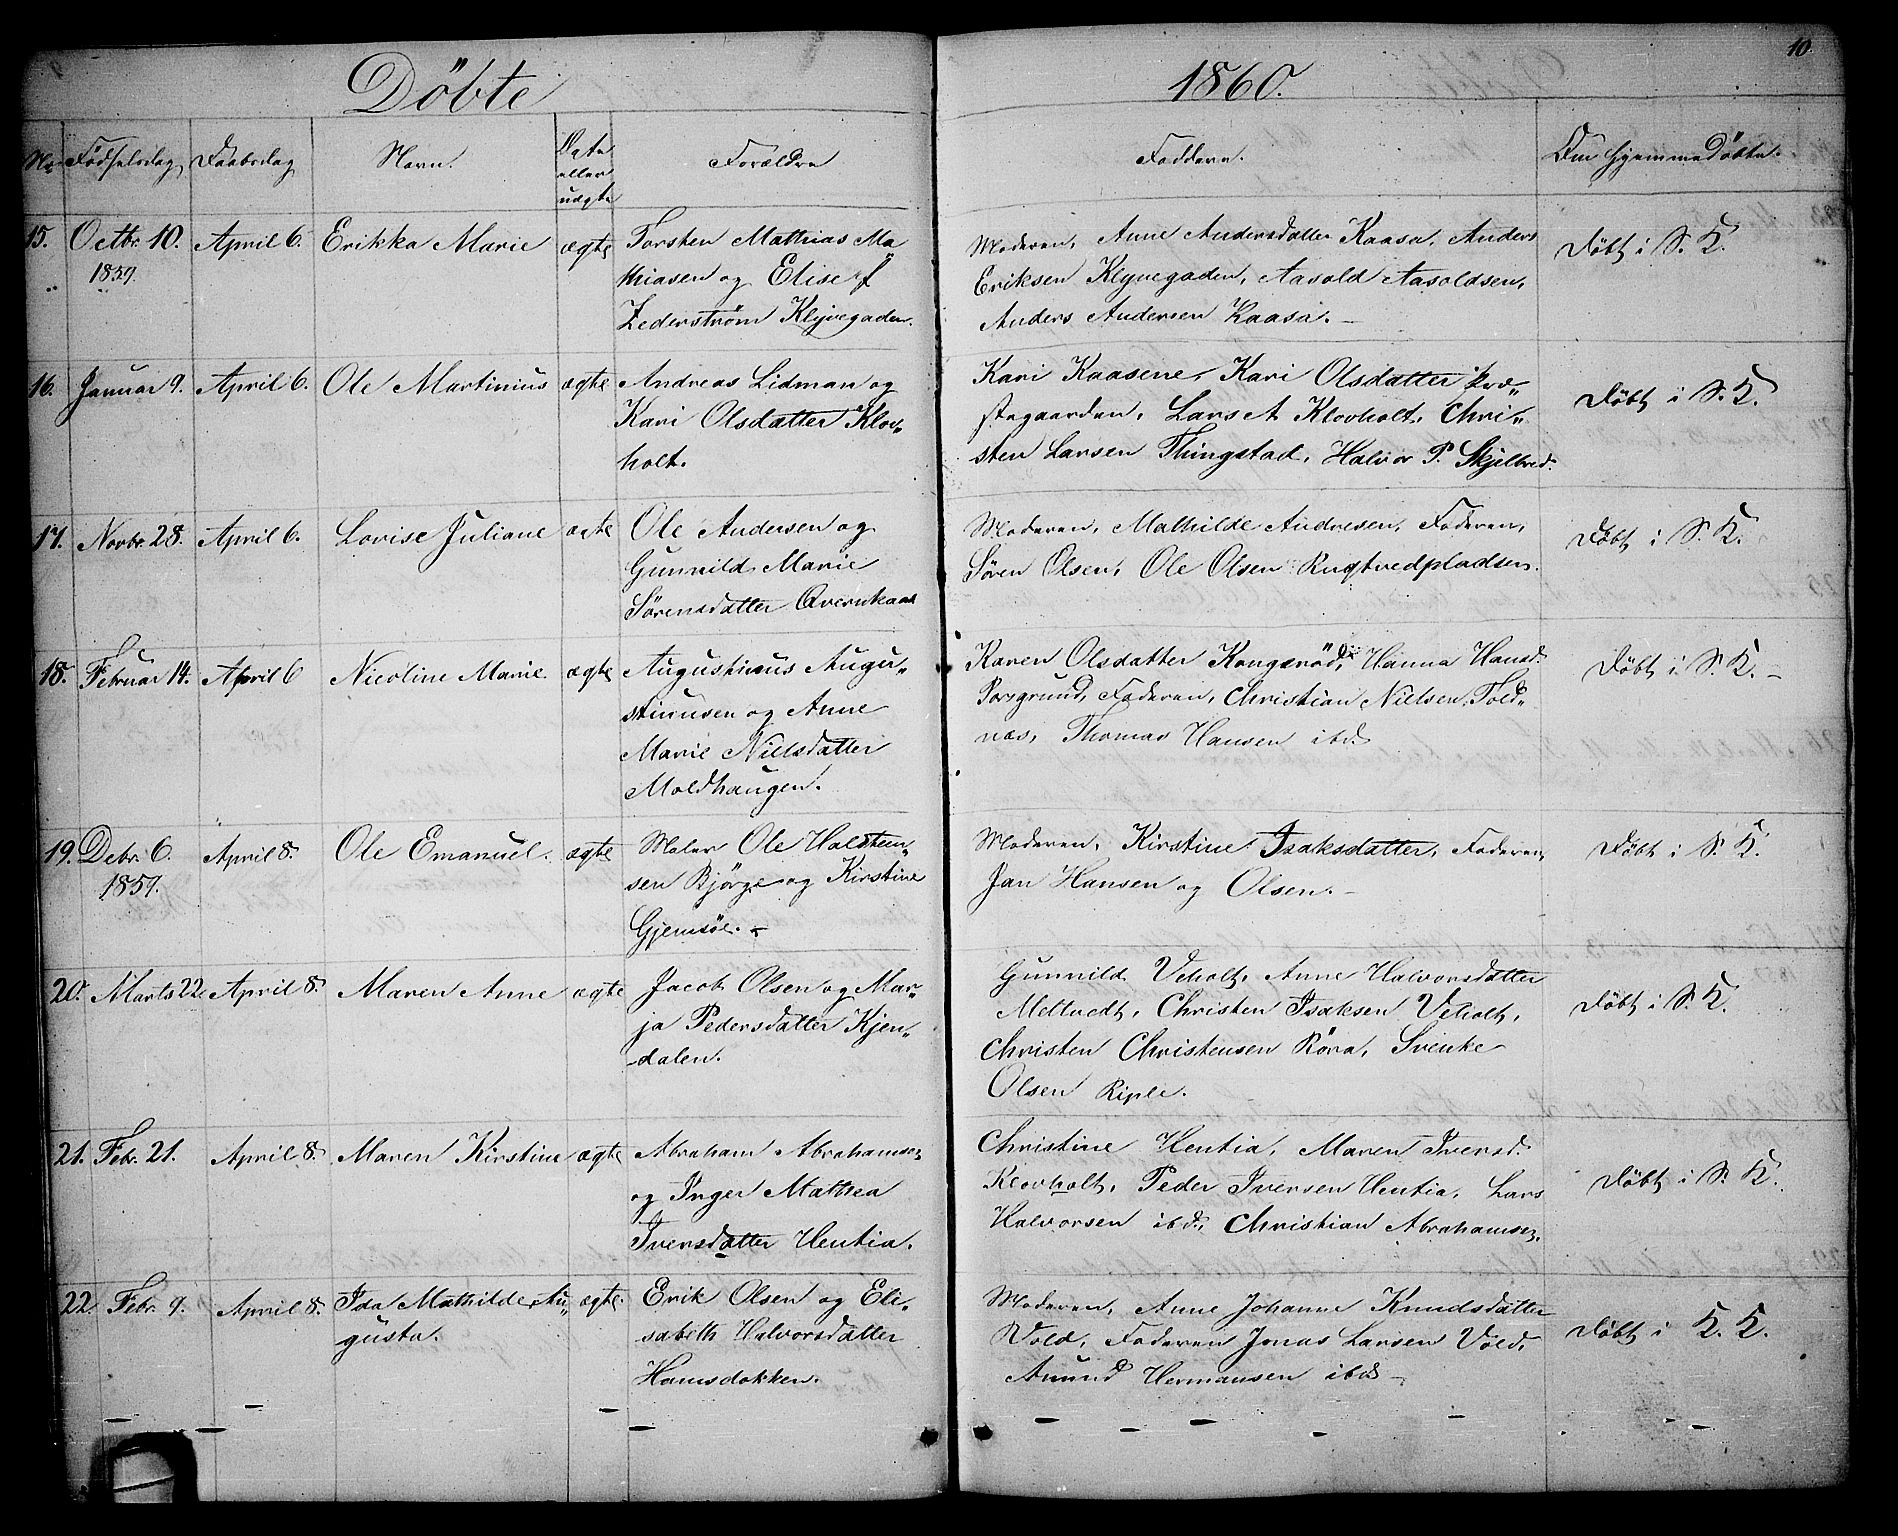 Döbte
1860.
10.
No Fødselsdag Daabsdag Navn Ægte eller uægte Forældre Faddere. Om hjemmedöbte.
15. Octbr. 10. 1859. April 6. Erikka Marie ægte
Torsten Mathias Ma
thiasen og Elise f
Zederström Klyvegaden.
Moderen, Anne Andersdatter Kaasa, Anders
Eriksen Klyvegaden, Aasold Aasoldsen,
Anders Andersen Kaasa.
Döbt i S. K.
16. Januar 9. April 6. Ole Martinius ægte
Andreas Lidman og
Kari Olsdatter Klov-
holt.
Kari Kaasene, Kari Olsdatter Præ-
stegaarden, Lars A Klovholt, Chri-
sten Larsen Thingstad, Halvor P. Skjelbred.
Döbt i S. K.
17. Novbr. 28. April 6. Lovise Juliane ægte
Ole Andersen og
Gunnild Marie
Sörensdatter Qvernkaas
Moderen, Mathilde Andresen, Faderen,
Sören Olsen, Ole Olsen Rugtvedpladsen.
Döbt i S. K.
18. Februar 14. April 6 Nicoline Marie ægte
Augustinus Augu-
stinusen og Anne
Marie Nielsdatter
Moldhaugen.
Karen Olsdatter Kongeröd, Hanna Hansd.
Porsgrund, Faderen, Christian Nielsen, Told-
næs, Thomas Hansen ibd.
Döbt i S. K. -
19. Debr. 6. 1859. April 8. Ole Emanuel. ægte
Maler Ole Halsten-
sen Björge og Kirstine
Gjemsöe. -
Moderen, Kirstine Isaksdatter, Faderen,
Jan Hansen og Olsen. -
Döbt i S. K.
20. Marts 22. April 8. Maren Anne ægte
Jacob Olsen og Mar-
ja Pedersdatter Kjen-
dalen.
Gunnild Veholt, Anne Halvorsdatter
Meltvedt, Christen Isaksen Veholt,
Christen Christensen Röra, Svenke
Olsen Riple.
Döbt i S. K.
21. Febr. 21. April 8. Maren Kirstine ægte
Abraham Abrahamsen
og Inger Mathea
Iversdatter Hentia.
Christine Hentia, Maren Iversd.
Klovholt, Peder Iversen Hentia, Lars
Halvorsen ibd., Christian Abrahamsen.
Döbt i S. K.
22. Febr. 9. April 8. Ida Mathilde Au-
gusta. ægte.
Erik Olsen og Eli-
sabeth Halvorsdatter
Hamsdokken.
Moderen, Anne Johanne Knudsdatter
Vold, Faderen, Jonas Larsen Vold,
Amund Hermansen ibd -
Döbt i K. K.